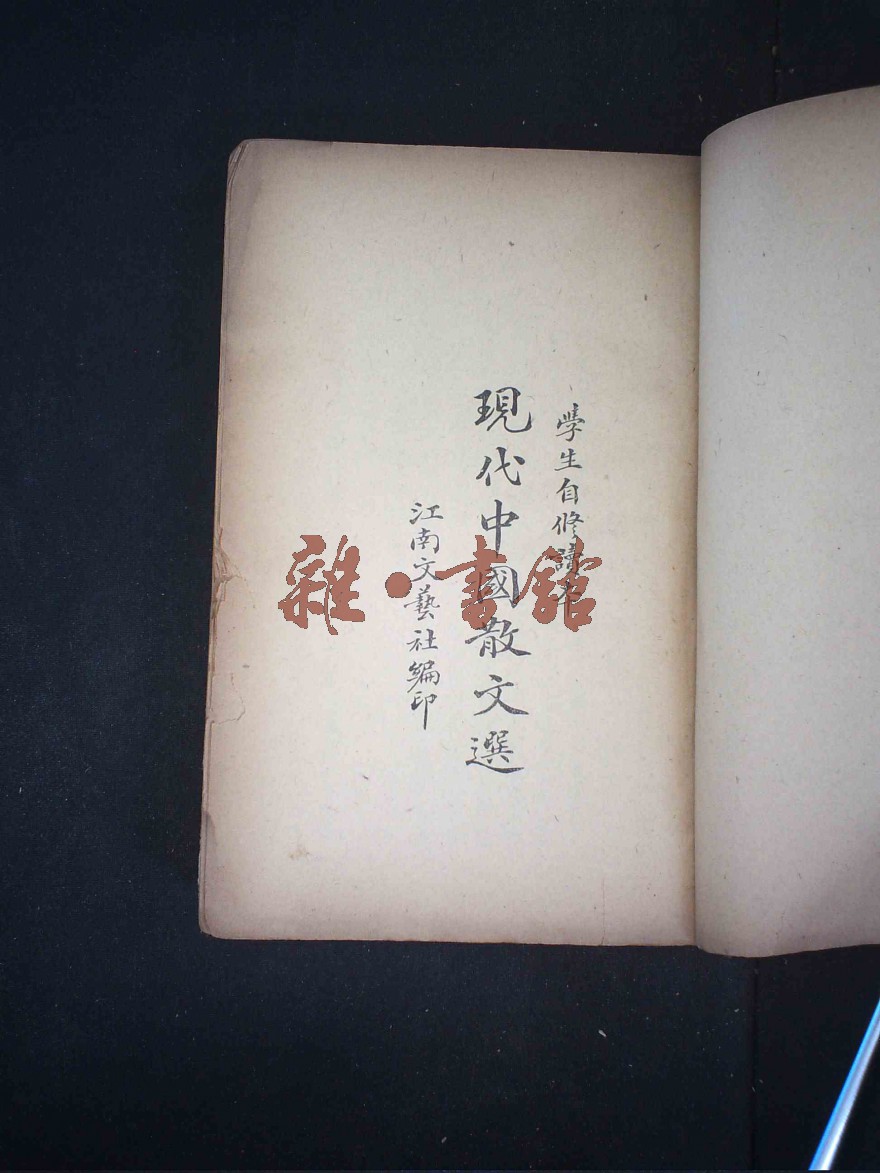 學生自修讀本
現代中國散文選
江南文藝社編印
雜·書館